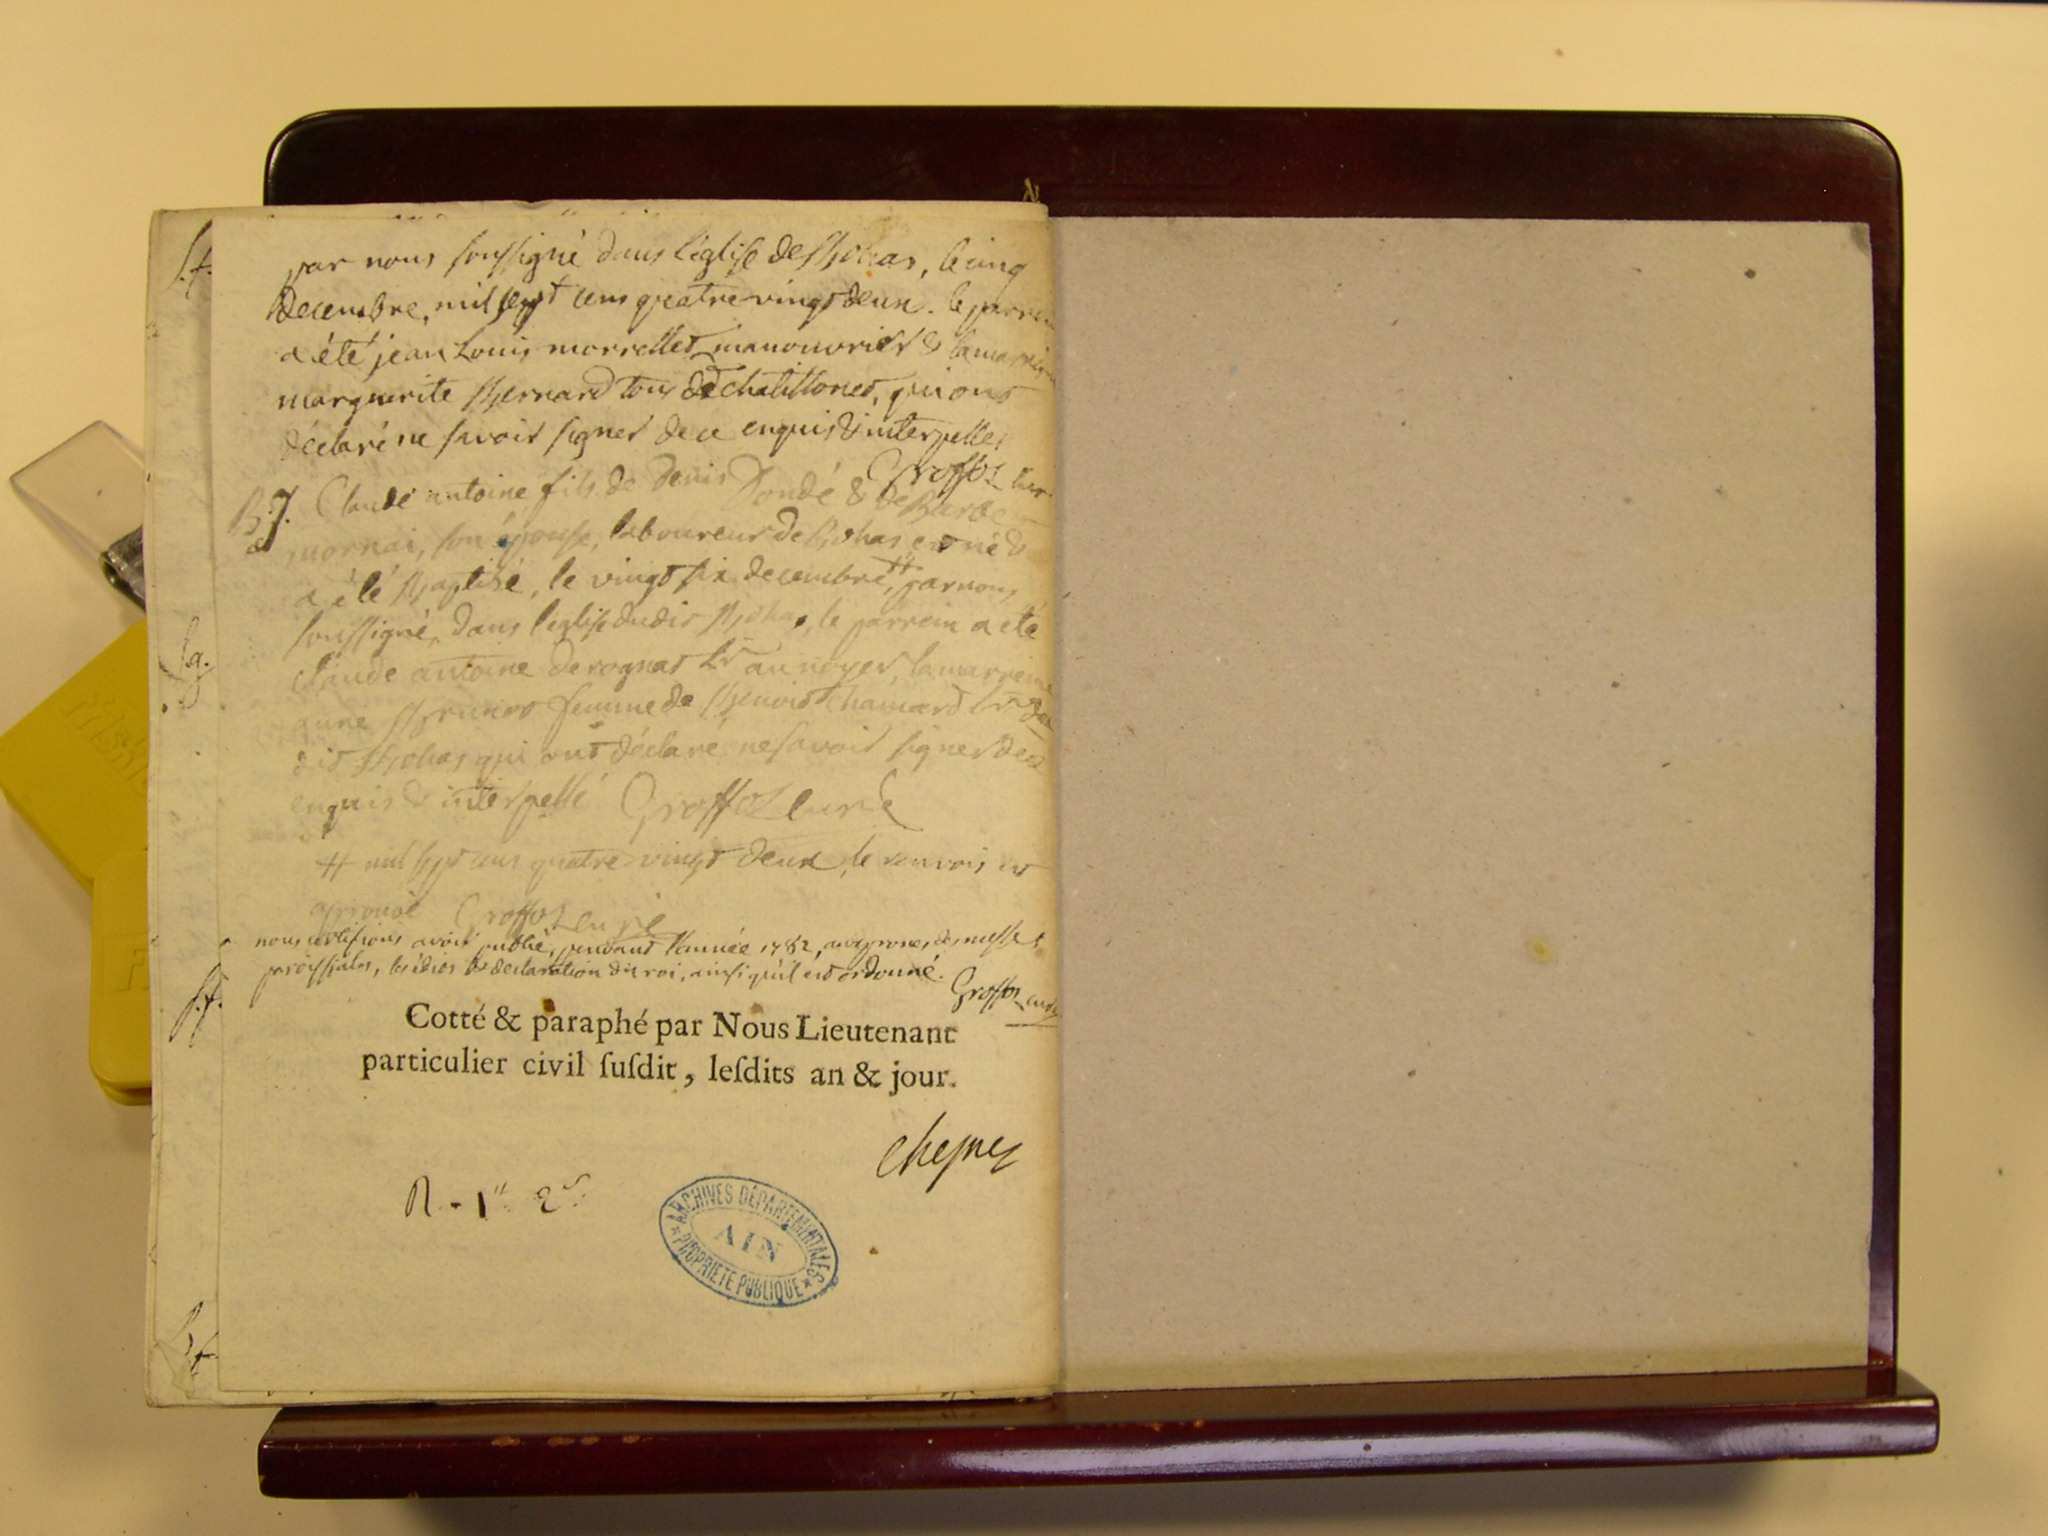 par nous soussigné dans l'église de Bohas, le cinq
decembre, mil sept cens quatre vingt deux. le parrein
a été jean Louis morrellet manouvrier & la marreine
marguerite Bernard tous de chatillonet, qui ont
déclaré ne savoir signer de ce enquis & interpellés
Groffoz curé
B. J. Claude antoine fils de Denis Dondé & de Barbe
mornai, son épouse, laboureur de Bohas est né &
a été Baptisé, le vingt six decembre, # par nous
soussigné, dans l'église dudit Bohas, le parrein a été
Claude antoine derognat Lr au noyer, la marreine
anne Brunet femme de Benoit Lr du
dit Bohas qui ont déclaré ne savoir signer de ce
enquis & interpellé Groffoz curé
# mil sept cens quatre vingt deux, le renvois est
approuvé Groffoz curé
nous certifions avoir publié, pendant l'année 1782, aux prones, des messes
paroissiales, les édits & declaration du roi, ainsi qu'il est ordonné.
Groffoz curé
Cotté & paraphé par Nous Lieutenant
particulier civil ſuſdit, leſdits an & jour.
R. 1 2
ARCHIVES DÉPARTEMENTALES
AIN
PROPRIÉTÉ PUBLIQUE